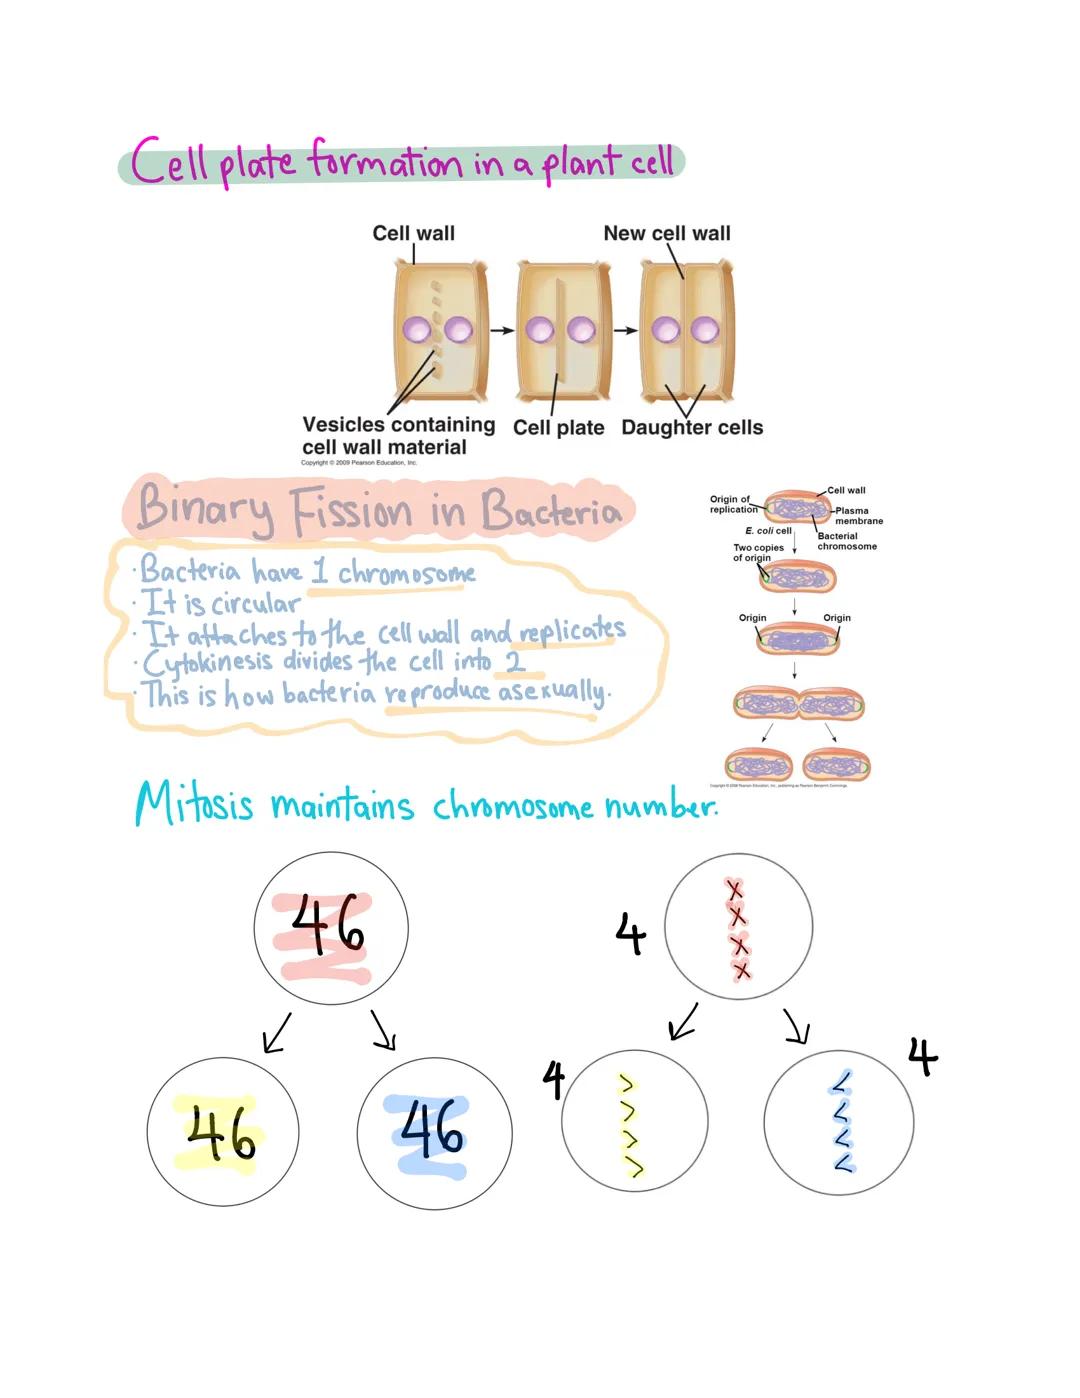 Cell plate formation in a plant cell
Cell wall
New cell wall
Vesicles containing
cell wall material
Cell plate
Daughter cells
Copyright © 2009 Pearson Education, Inc.
Binary Fission in Bacteria
· Bacteria have 1 chromosome
· It is circular
· It attaches to the cell wall and replicates
· Cytokinesis divides the cell into 2
· This is how bacteria reproduce asexually.
Origin of
replication
Cell wall
Plasma
membrane
E. coli cell
Bacterial
chromosome
Two copies
of origin
Origin
Origin
Copyright © 2008 Pearson Education, Inc., publishing as Pearson Benjamin Cummings.
Mitosis maintains chromosome number.
46
4
46
46
4
4